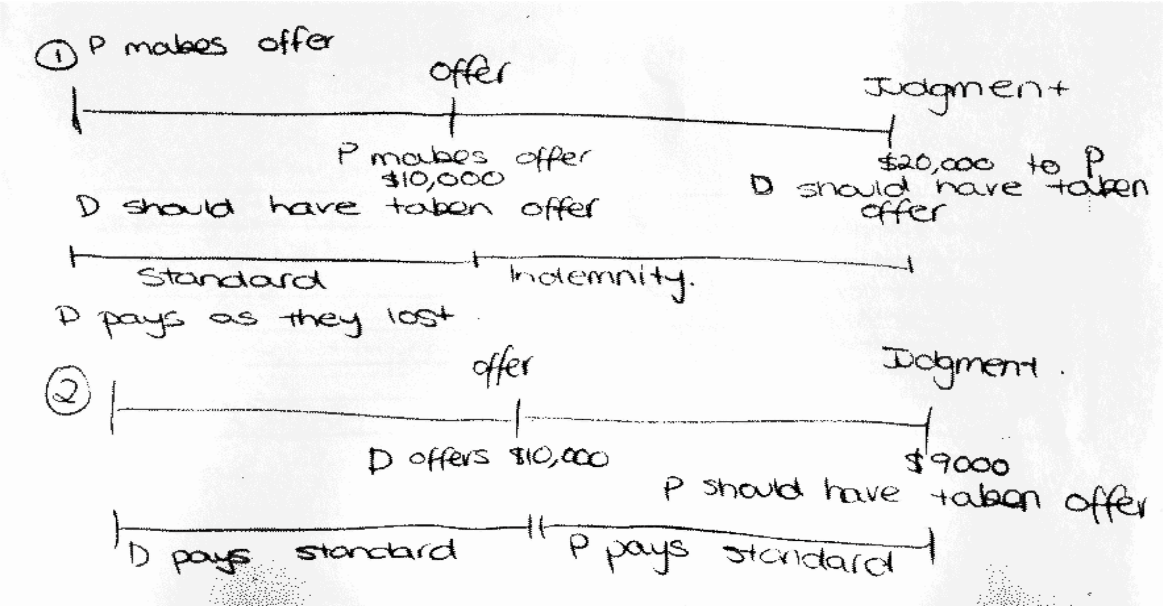 ① P makes offer
offer
Judgment
P makes offer
$10,000
D should have taken offer
$20,000 to P
D should have taken
offer
Standard
Indemnity.
D pays as they lost
② offer
Judgment.
D offers $10,000
$9000
P should have taken offer
D pays standard
P pays standard